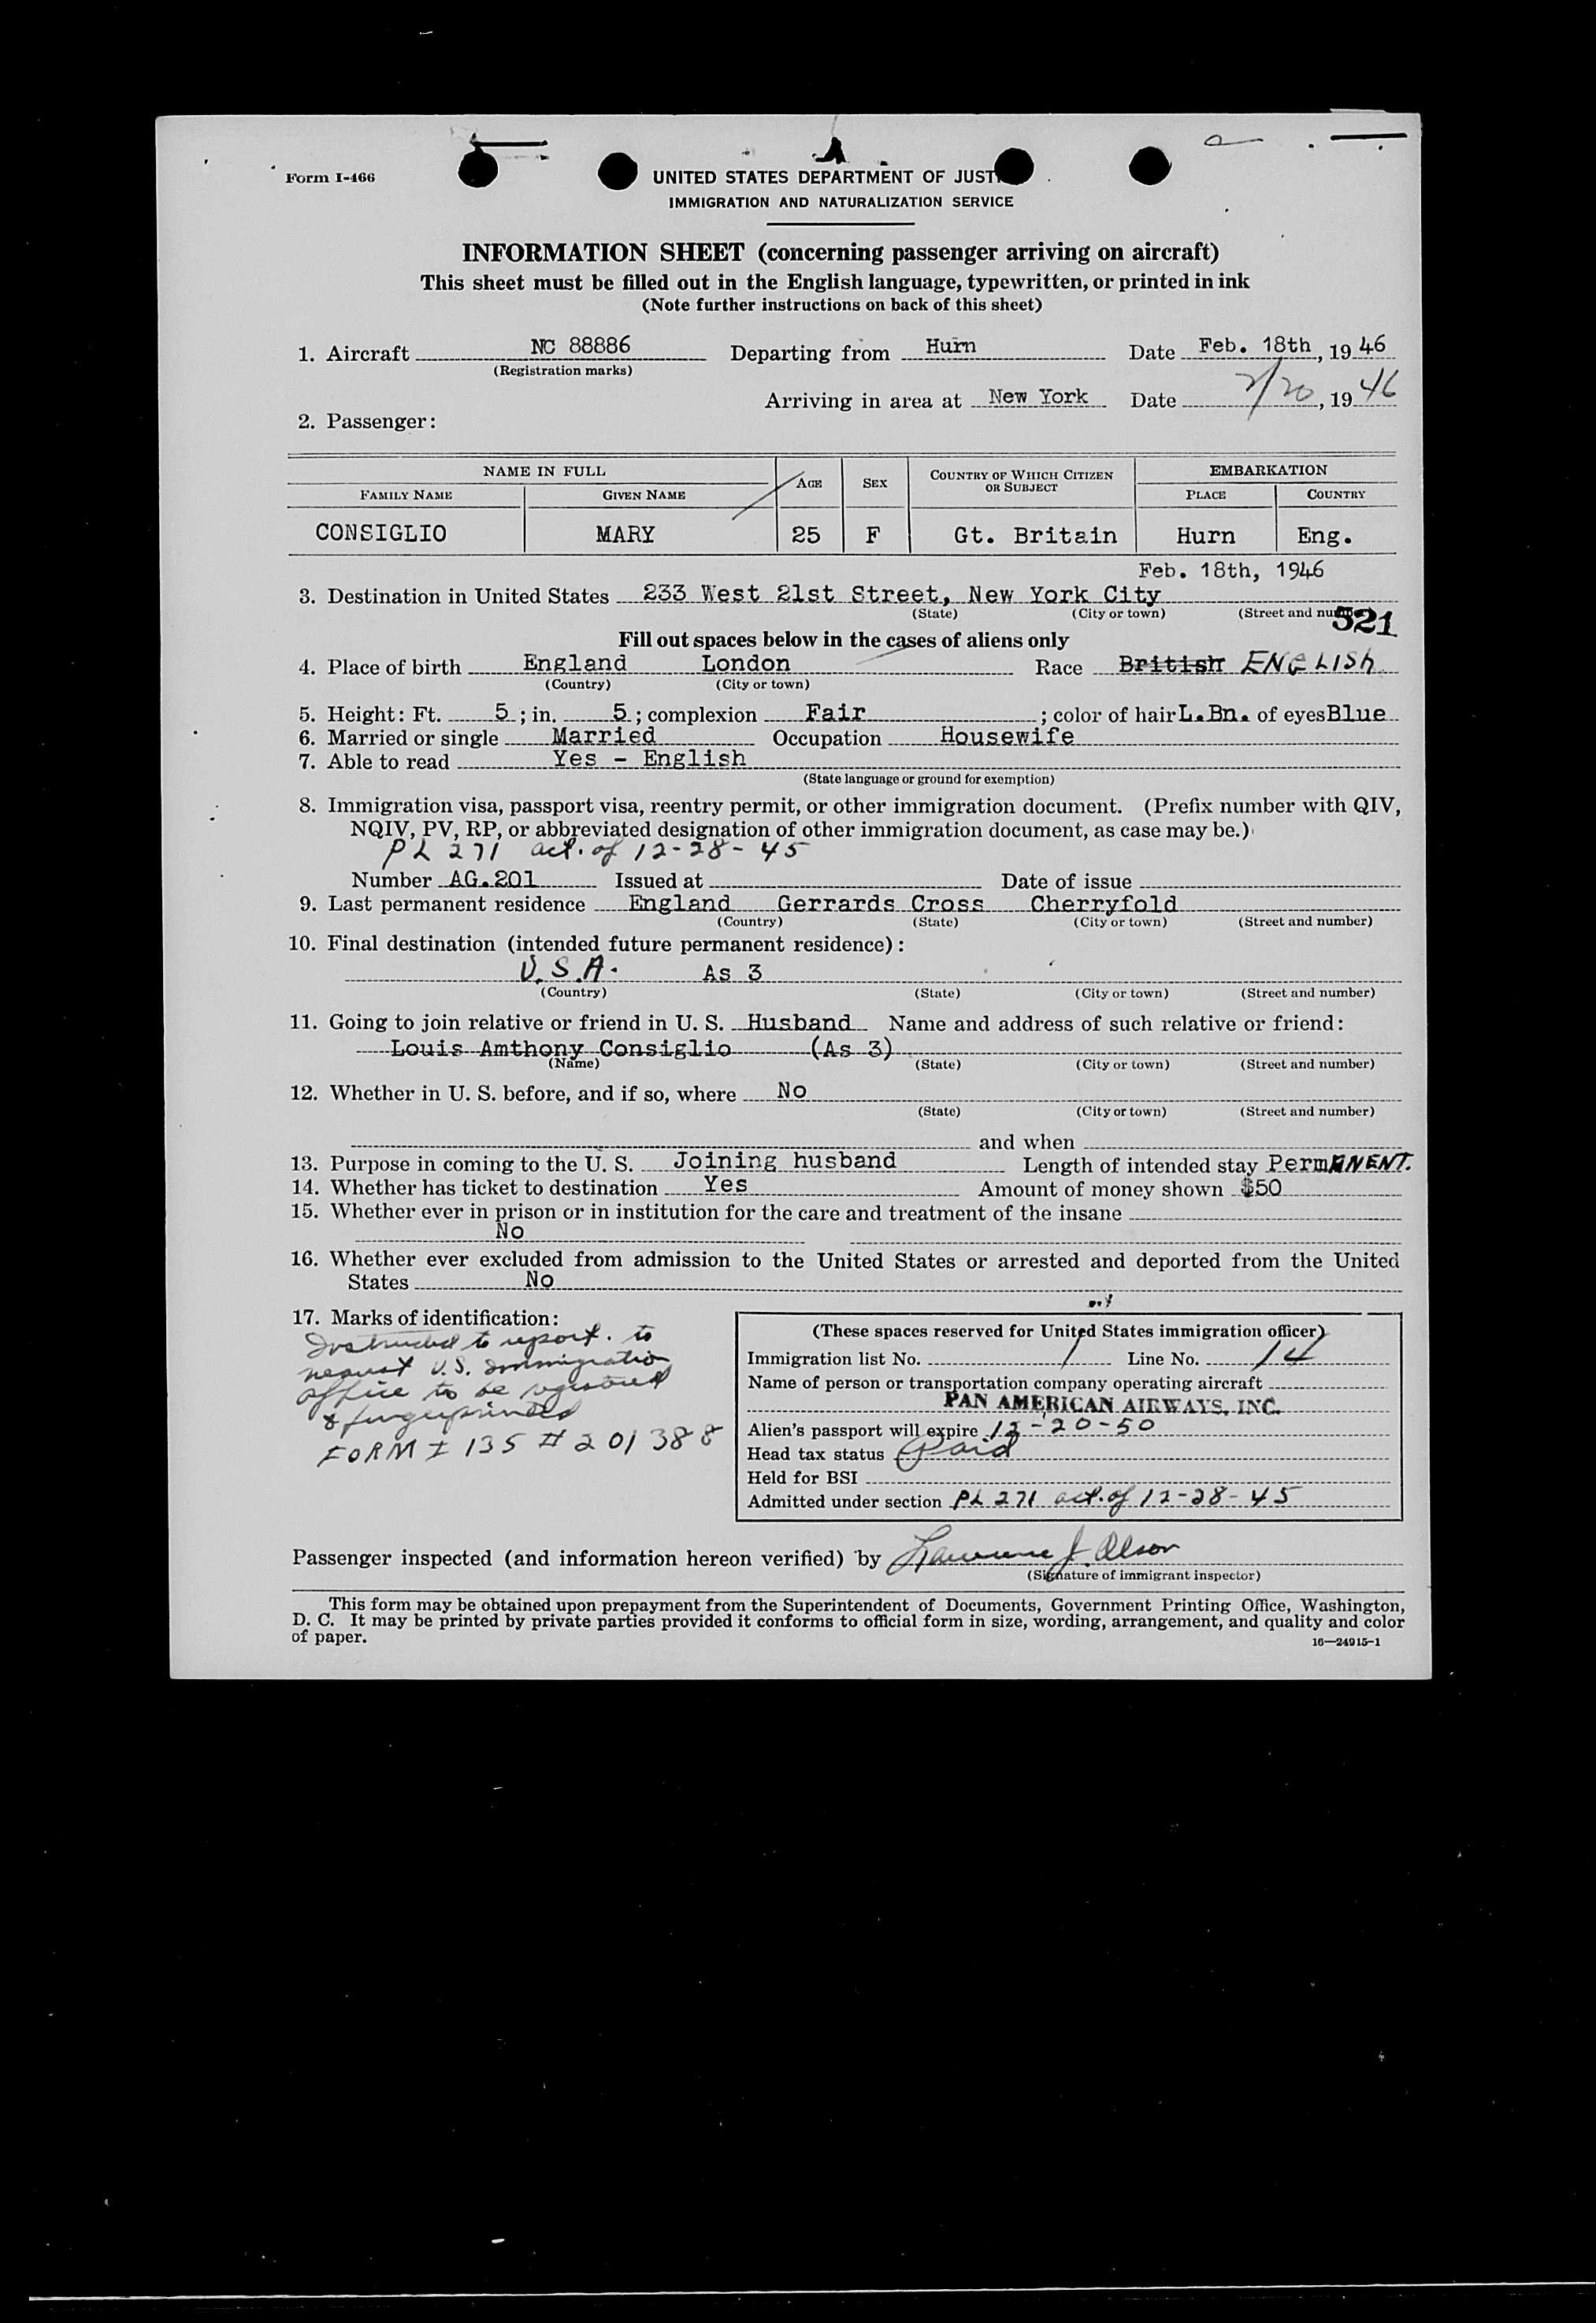 Form I-466
UNITED STATES DEPARTMENT OF JUST
IMMIGRATION AND NATURALIZATION SERVICE
INFORMATION SHEET (concerning passenger arriving on aircraft)
This sheet must be filled out in the English language, typewritten, or printed in ink
(Note further instructions on back of this sheet)
1. Aircraft NC 88886 Departing from Hurn Date Feb. 18th, 1946
(Registration marks)
Arriving in area at New York Date 2/20, 1946
2. Passenger:
NAME IN FULL AGE SEX COUNTRY OF WHICH CITIZEN OR SUBJECT EMBARKATION
FAMILY NAME GIVEN NAME PLACE COUNTRY
CONSIGLIO MARY 25 F Gt. Britain Hurn Eng.
Feb. 18th, 1946
3. Destination in United States 233 West 21st Street, New York City
(State) (City or town) (Street and nu
521
Fill out spaces below in the cases of aliens only
4. Place of birth England London Race British ENGLISH
(Country) (City or town)
5. Height: Ft. 5; in. 5; complexion Fair; color of hair L.Bn. of eyes Blue
6. Married or single Married Occupation Housewife
7. Able to read Yes - English
(State language or ground for exemption)
8. Immigration visa, passport visa, reentry permit, or other immigration document. (Prefix number with QIV,
NQIV, PV, RP, or abbreviated designation of other immigration document, as case may be.)
PL 271 act. of 12-28-45
Number AG.201 Issued at Date of issue
9. Last permanent residence England Gerrards Cross Cherryfold
(Country) (State) (City or town) (Street and number)
10. Final destination (intended future permanent residence):
U.S.A. As 3
(Country) (State) (City or town) (Street and number)
11. Going to join relative or friend in U. S. Husband Name and address of such relative or friend:
Louis Amthony Consiglio (As 3)
(Name) (State) (City or town) (Street and number)
12. Whether in U. S. before, and if so, where No
(State) (City or town) (Street and number)
and when
13. Purpose in coming to the U. S. Joining husband Length of intended stay PermANENT.
14. Whether has ticket to destination Yes Amount of money shown $50
15. Whether ever in prison or in institution for the care and treatment of the insane
No
16. Whether ever excluded from admission to the United States or arrested and deported from the United
States No
17. Marks of identification:
Instructed to report. to
nearest U.S. Immigration
office to be registered
& fingerprinted
FORM I 135 # 201388
(These spaces reserved for United States immigration officer)
Immigration list No. 1 Line No. 14
Name of person or transportation company operating aircraft
PAN AMERICAN AIRWAYS, INC.
Alien's passport will expire 12-20-50
Head tax status Paid
Held for BSI
Admitted under section PL 271 act. of 12-28-45
Passenger inspected (and information hereon verified) by Lawrence J. Olson
(Signature of immigrant inspector)
This form may be obtained upon prepayment from the Superintendent of Documents, Government Printing Office, Washington,
D. C. It may be printed by private parties provided it conforms to official form in size, wording, arrangement, and quality and color
of paper.
16—24915-1